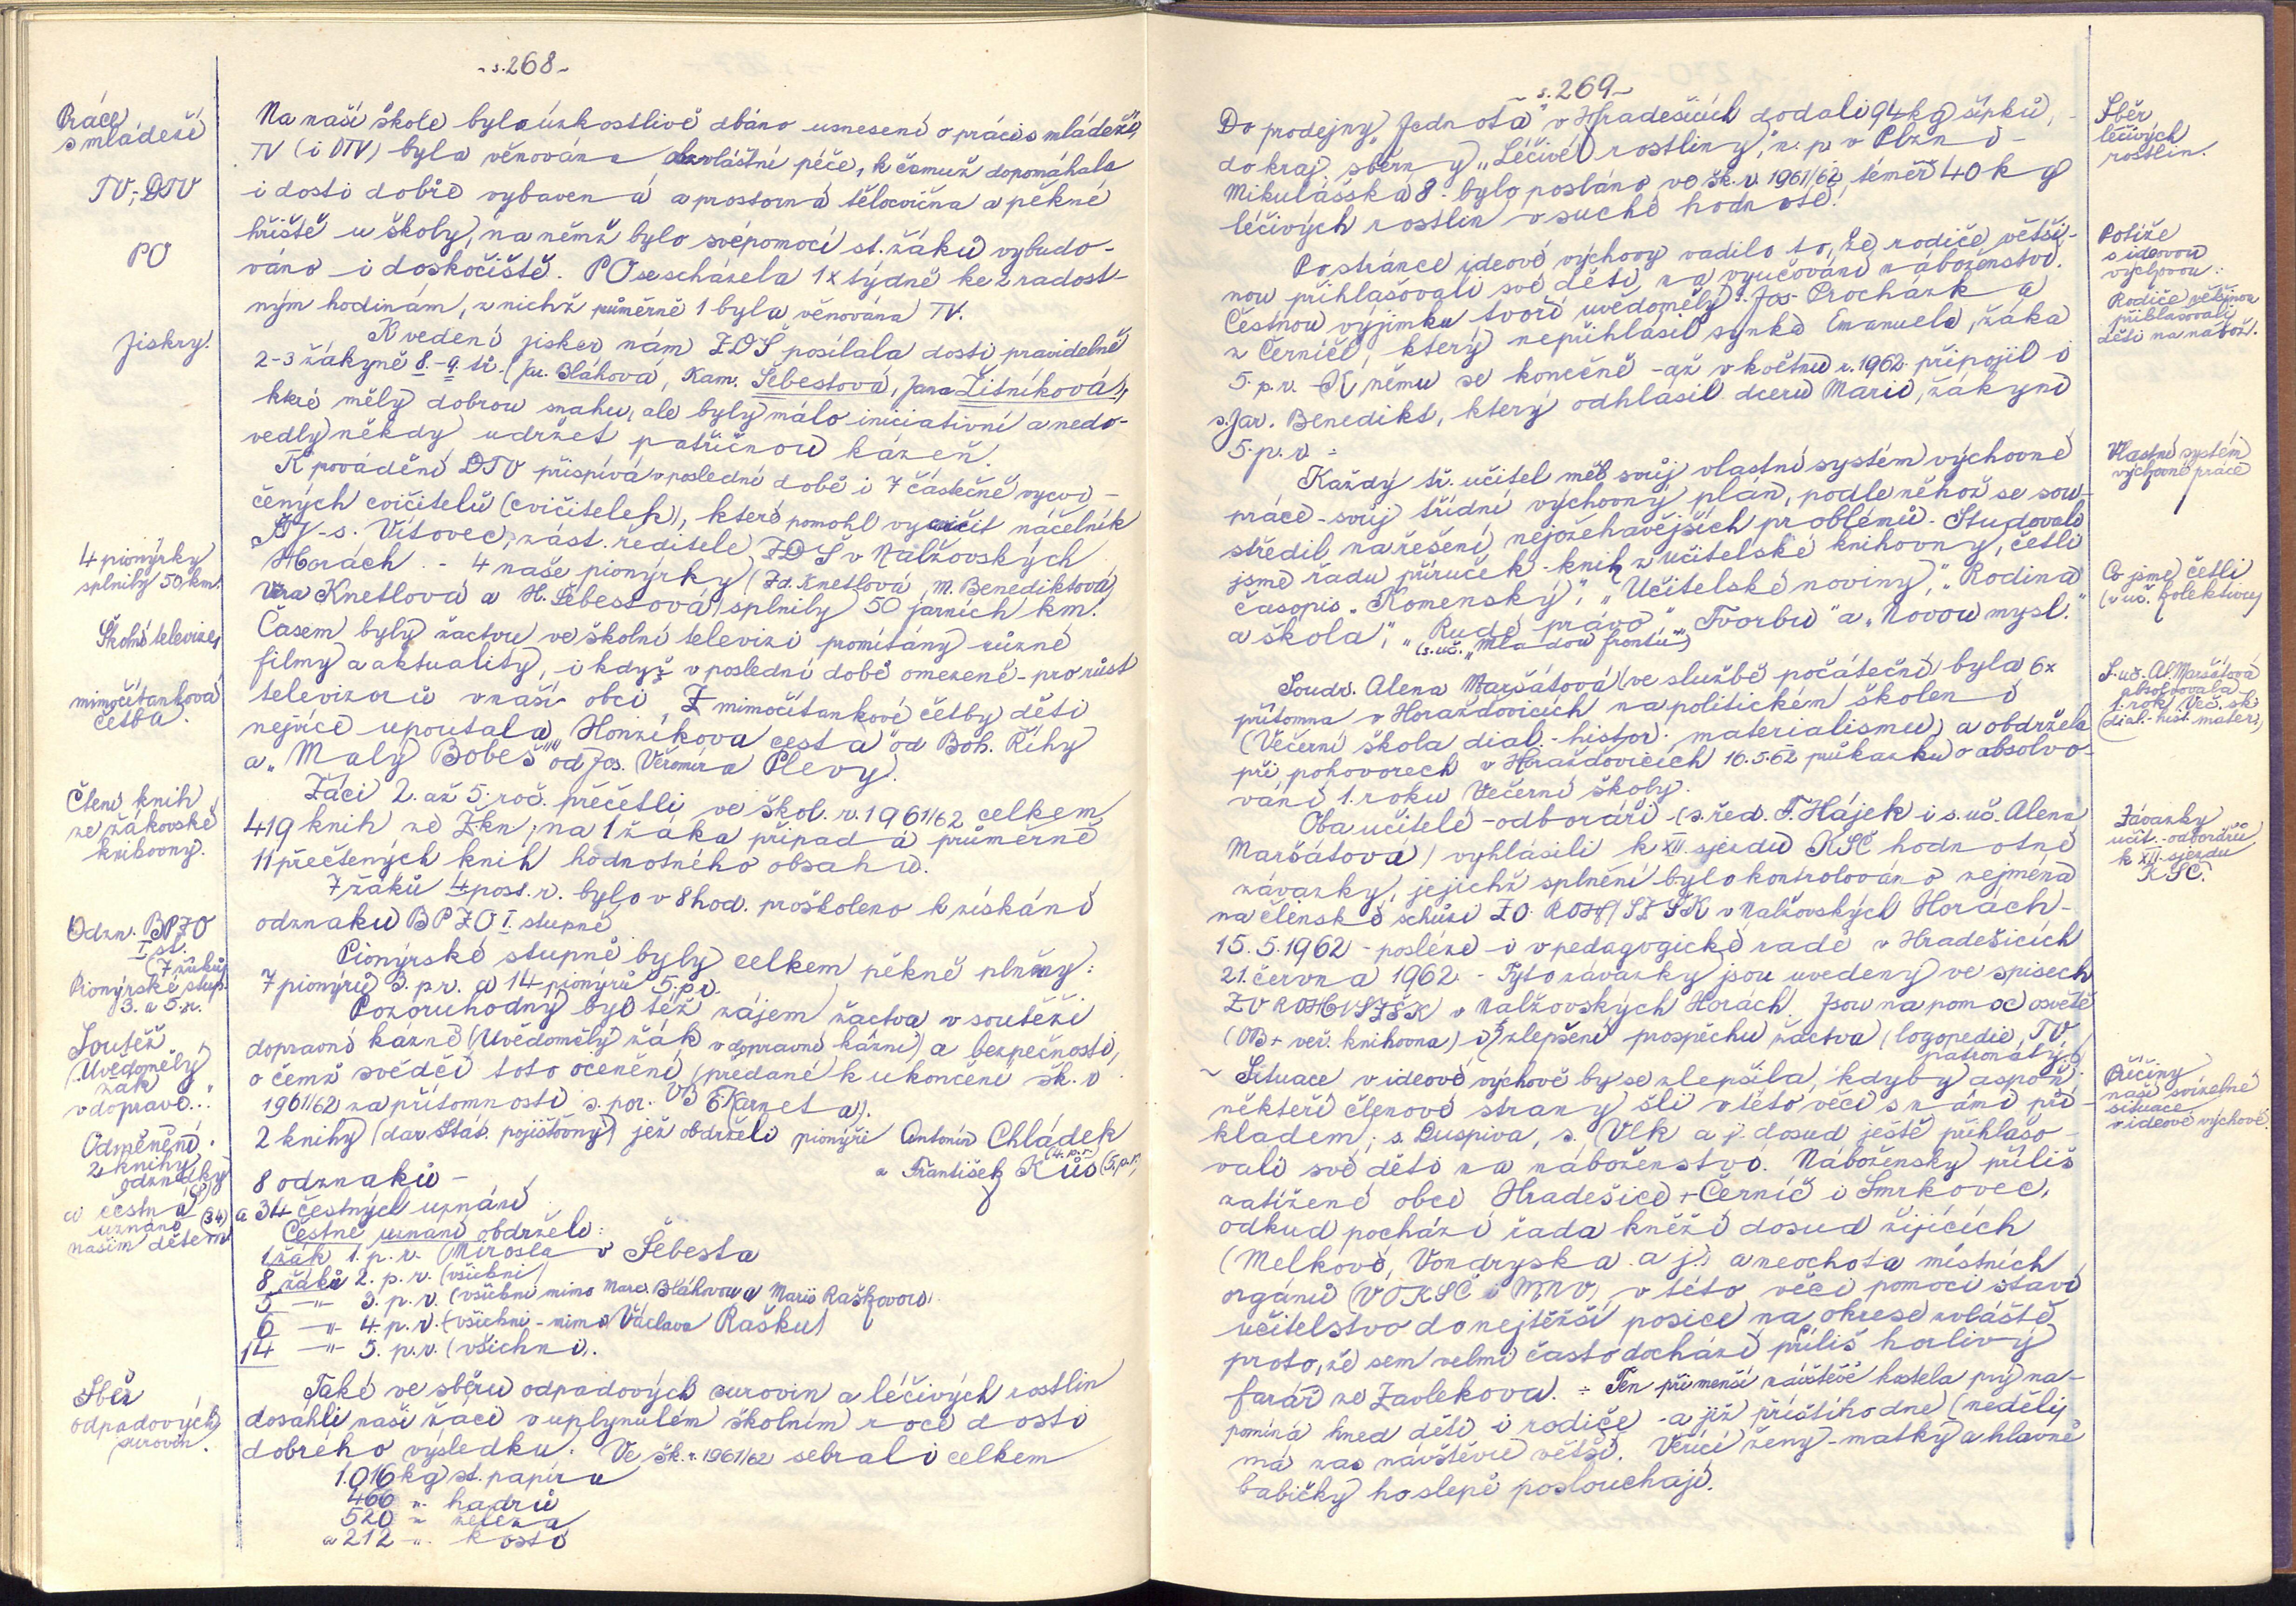 - s. 268 -
Práce
s mládeží
TV; DTV
PO
Jiskry.
4 pionýrky
splnily 50 km.
Školní televize,
mimočítanková
četba.
Čtení knih
ze žákovské
knihovny.
Odzn. BPZO
I. st.
(7 žáků)
Pionýrské stup.
3. a 5. r.
Soutěž
„Uvědomělý
žák
v dopravě..."
Odměnění.
2 knihy,
odznaky
(8)
a čestná
uznání (34)
našim dětem
Sběr
odpadových
surovin.
Na naší škole bylo úzkostlivě dbáno usnesení o práci s mládeží,
TV (i DTV) byla věnována zvláštní péče, k čemuž dopomáhala
i dosti dobře vybavená a prostorná tělocvična a pěkné
hřiště u školy, na němž bylo svépomocí st. žáků vybudo-
váno i doskočiště. PO se scházela 1x týdně ke 2 radost-
ným hodinám, z nichž průměrně 1 byla věnována TV.
K vedení jisker nám ZDŠ posílala dosti pravidelně
2-3 žákyně 8.-9. tř. (Jar. Bláhová, Kam. Šebestová, Jana Žitníková),
které měly dobrou snahu, ale byly málo iniciativní a nedo-
vedly někdy udržet patřičnou kázeň.
K provádění DTV přispívá v poslední době i 7 částečně vycvi-
čených cvičitelů (cvičitelek), které pomohl vycvičit náčelník
TJ - s. Vítovec, zást. ředitele ZDŠ v Nalžovských
Horách. - 4 naše pionýrky (Zd. Knetlová, M. Benediktová,
Věra Knetlová a H. Šebestová) splnily 50 jarních km.
Časem byly žactvu ve školní televizi promítány různé
filmy a aktuality, i když v poslední době omezeně - pro růst
televizorů v naší obci. Z mimočítankové četby děti
nejvíce upoutala „Honzíkova cesta" od Boh. Říhy
a „Malý Bobeš" od Jos. Věromíra Plevy.
Žáci 2. až 5. roč. přečetli ve škol. r. 1961/62 celkem
419 knih ze Ž.kn; na 1 žáka připadá průměrně
11 přečtených knih hodnotného obsahu.
7 žáků 4. post. r. bylo v 8 hod. proškoleno k získání
odznaku BPZO I. stupně
Pionýrské stupně byly celkem pěkně plněny:
7 pionýrů 3. p. r. a 14 pionýrů 5. p. r.
Pozoruhodný byl též zájem žactva v soutěži
dopravní kázně (Uvědomělý žák v dopravní kázni) a bezpečnosti,
o čemž svědčí toto ocenění (předané k ukončení šk. r.
1961/62 za přítomnosti s. por. VB Karneta).
2 knihy (dar Stát. pojišťovny) jež obdrželi pionýři Antonín Chládek
(4. p. r.)
a František Kůs (5. p. r.)
8 odznaků -
a 34 čestných uznání
Čestné uznání obdrželi:
1 žák 1. p. r. (Miroslav Šebesta
8 žáků 2. p. r. (všichni)
5 -"- 3. p. r. (všichni mimo Marc. Bláhovou a Marii Raškovou).
6 -"- 4. p. r. (všichni - mimo Václava Rašku)
14 -"- 5. p. r. (všichni).
Také ve sběru odpadových surovin a léčivých rostlin
dosáhli naši žáci v uplynulém školním roce dosti
dobrého výsledku. Ve šk. r. 1961/62 sebrali celkem
1.016 kg st. papíru
466 " hadrů
520 " železa
a 212 " kostí
- s. 269 -
Do prodejny „Jednota" v Hradešicích dodali 94 kg šípků,
do kraj. sběrny „Léčivé rostliny", n. p. v Plzni -
Mikulášská 8 - bylo posláno ve šk. r. 1961/62 téměř 40 kg
léčivých rostlin v suché hodnotě!
Po stránce ideové výchovy vadilo to, že rodiče větši-
nou přihlašovali své děti na vyučování náboženství.
Čestnou výjimku tvoří uvědomělý s. Jos. Procházka
z Černíče, který nepřihlásil synka Emanuela, žáka
5. p. r. - K němu se konečně - až v květnu r. 1962 připojil i
s. Jar. Benedikt, který odhlásil dceru Marii, žákyni
5. p. r. -
Každý tř. učitel měl svůj vlastní systém výchovné
práce - svůj třídní výchovný plán, podle něhož se sou-
středil na řešení nejožehavějších problémů. Studovali
jsme řadu příruček - knih z učitelské knihovny, četli
časopis „Komenský", „Učitelské noviny", „Rodina
a škola", „Rudé právo", „Tvorbu" a „Novou mysl."
(s. uč. „Mladou frontu")
Soudr. Alena Maršátová (ve službě počáteční) byla 6x
přítomna v Horažďovicích na politickém školení
(Večerní škola dial.-histor. materialismu) a obdržela
při pohovorech v Horažďovicích 16.5.62 průkazku o absolvo-
vání 1. roku Večerní školy.
Oba učitelé - odboráři - (s. řed. F. Hájek i s. uč. Alena
Maršátová) vyhlásili k XII. sjezdu KSČ hodnotné
závazky, jejichž splnění bylo kontrolováno zejména
na členské schůzi ZO ROH SZŠK v Nalžovských Horách -
15.5.1962 - posléze i v pedagogické radě v Hradešicích
21. června 1962. - Tyto závazky jsou uvedeny ve spisech
ZV ROH SZŠK v Nalžovských Horách. Jsou na pomoc osvětě
(OB + veř. knihovna) i zlepšení prospěchu žactva (logopedie, TV,
pationáty.)
~ Situace v ideové výchově by se zlepšila, kdyby aspoň
někteří členové strany šli v této věci s námi pří-
kladem; s. Duspiva, s. Vlk a j. dosud ještě přihlašo-
vali své děti na náboženství. Nábožensky příliš
zatížené obce Hradešice + Černíč i Smrkovec,
odkud pochází řada kněží dosud žijících
(Melkové, Vondryska a j.) a neochota místních
orgánů (VO KSČ i MNV) v této věci pomoci staví
učitelstvo do nejtěžší posice na okrese zvláště
proto, že sem velmi často dochází příliš horlivý
farář ze Zavlekova. ÷ Ten při menší návštěvě kostela prý na-
pomíná hned děti i rodiče - a již příštího dne (neděli)
má zas návštěvu větší. Věřící ženy - matky a hlavně
babičky ho slepě poslouchají.
Sběr
léčivých
rostlin.
Potíže
s ideovou
výchovou:
Rodiče většinou
přihlašovali
děti na nábož.
Vlastní systém
výchovné práce
Co jsme četli
(v uč. kolektivu)
S. uč. Al. Maršátová
absolvovala
1. rok Več. šk.
(dial.-hist. mater.)
Závazky
učit. - odborářů
k XII. sjezdu
KSČ.
Příčiny
naší svízelné
situace
v ideové výchově.